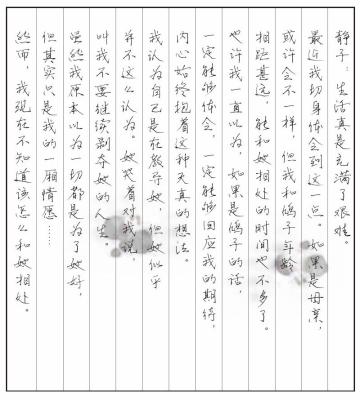 静子：生活真是充满了艰难。
最近我切身体会到这一点。如果是母亲，
或许会不一样，但我和鸽子年龄
相距甚远，能和她相处的时间也不多了。
也许我一直以为，如果是鸽子的话，
一定能够体会，一定能够回应我的期待，
内心始终抱着这种天真的想法。
我认为自己是在教导她，但她似乎
并不这么认为。她哭着对我说，
叫我不要继续剥夺她的人生。
虽然我原本以为一切都是为了她好，
但其实只是我的一厢情愿……
然而，我现在不知道该怎么和她相处。